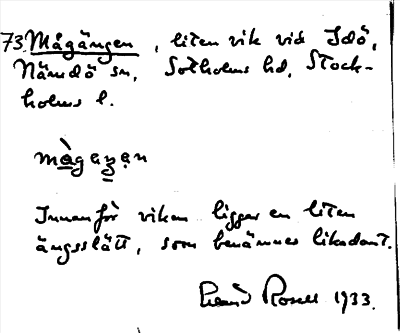 73. Mågången, liten vik vid Idö,
Nämdö sn, Sotholms hd, Stock-
holms l.
màgaŋən
Innanför viken ligger en liten
ängsslätt, som benämnes likadant.
1933.